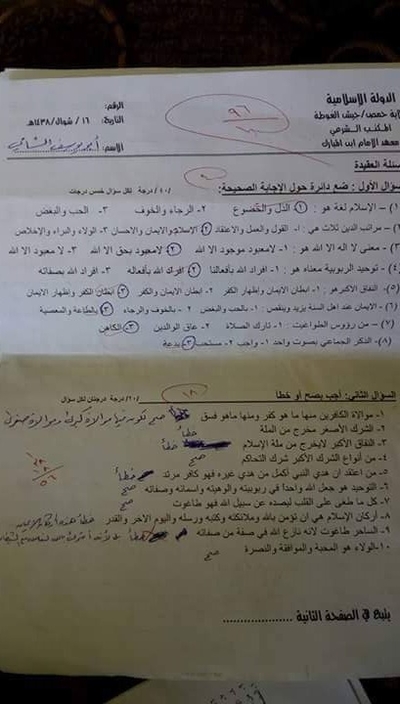 الدولة الإسلامية
ولاية حمص/جيش العوطة
المكتب الشرعي
معهد الامام ابن المبارك
الرقم:
التاريخ: ١٦ / شوال /١٤٣٨هـ
الاسم:
٩٦
أسئلة العقيدة
السؤال الأول : ضع دائرة حول الإجابة الصحيحة: (٤٠/ درجة لكل سؤال خمس درجات
١)- الإسلام لغة هو : ١- الذل والخضوع ٢- الرجاء والخوف ٣- الحب والبغض
٢)- مراتب الدين ثلاث هي : ١- القول والعمل والاعتقاد ٢- الإسلام والايمان والاحسان ٣- الولاء والبراء والاخلاص
٣)- معنى لا اله الا الله هو : ١- لامعبود موجود الا الله ٢- لامعبود بحق الا الله ٣- لا معبود الا الله
٤)- توحيد الربوبية معناه هو : ١- افراد الله بأفعالنا ٢- افراد الله بأفعاله ٣- افراد الله بصفاته
٥)- النفاق الأكبر هو : ١- ابطان الايمان وإظهار الكفر ٢- ابطان الايمان والكفر ٣- ابطان الكفر وإظهار الايمان
٦)- الايمان عند اهل السنة يزيد وينقص : ١- بالحب والبغض ٢- بالخوف والرجاء ٣- بالطاعة والمعصية
٧)- من رؤوس الطواغيت : ١- تارك الصلاة ٢- عاق الوالدين ٣- الكاهن
٨)- الذكر الجماعي بصوت واحد ١- واجب ٢- مستحب ٣- بدعة
السؤال الثاني: أجب بصح أو خطأ ١٨ (٢٠/ درجة درجتان لكل سؤال
١- موالاة الكافرين منها ما هو كفر ومنها ماهو فسق صح
٢- الشرك الأصغر مخرج من الملة خطأ
٣- النفاق الأكبر لايخرج من ملة الإسلام خطأ
٤- من أنواع الشرك الأكبر شرك التحاكم صح
٥- من اعتقد ان هدي النبي أكمل من هدي غيره فهو كافر مرتد خطأ
٦- التوحيد هو جعل الله واحداً في ربوبيته والوهيته واسمائه وصفاته صح
٧- كل ما طغى على القلب لبصده عن سبيل الله فهو طاغوت صح
٨- أركان الإسلام هي ان تؤمن بالله وملائكته وكتبه ورسله واليوم الآخر والقدر خطأ
٩- الساحر طاغوت لانه نازع الله في صفة من صفاته
١٠- الولاء هو المحبة والموافقة والنصرة صح
يتبع في الصفحة الثانية ....................